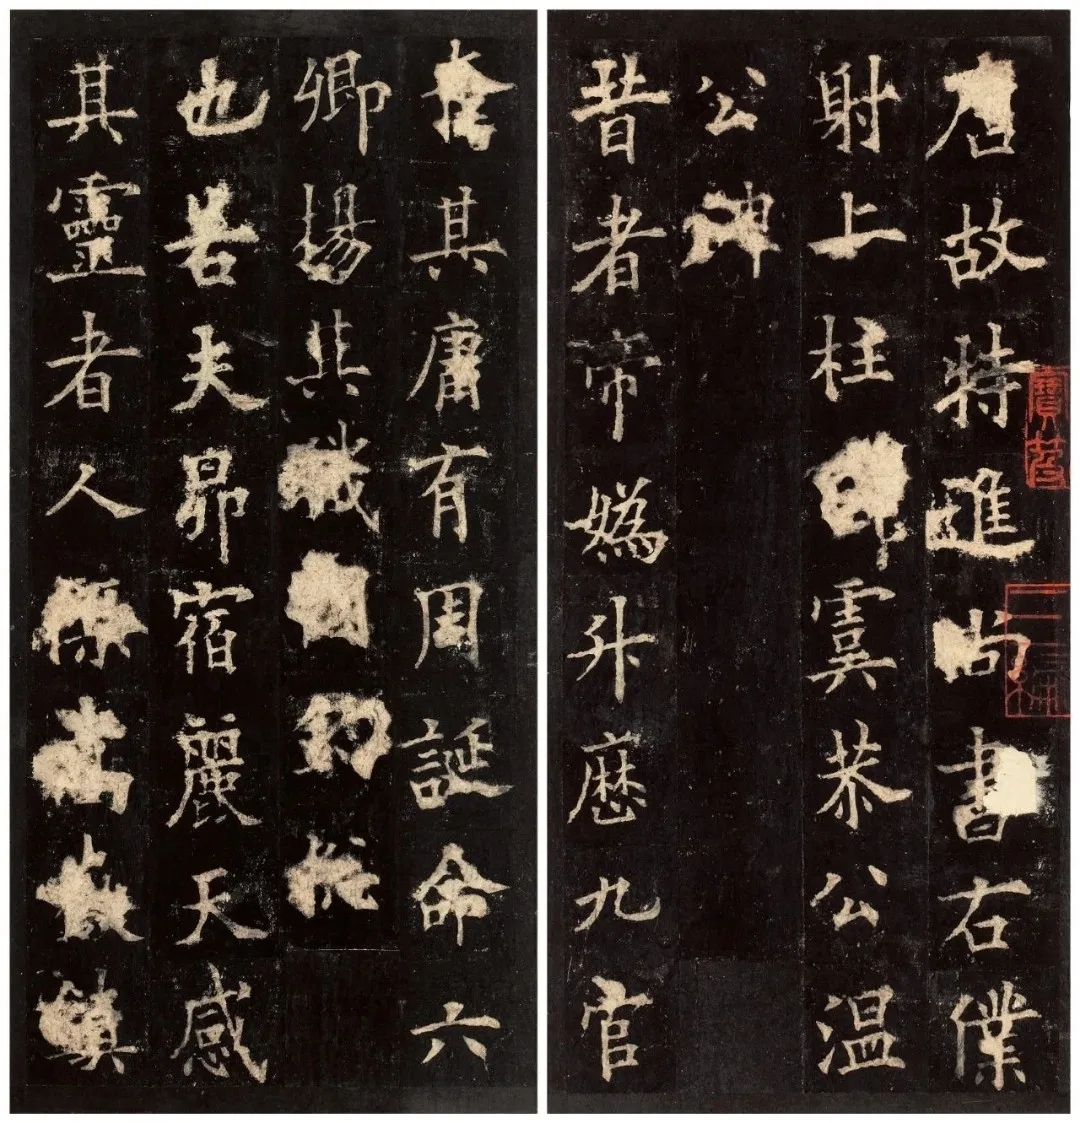 唐故特進尚書右僕
射上柱虞恭公温
公碑
昔者帝媯升歷九官
奮其庸有周誕命六
卿揚其職
也若夫昴宿麗天感
其靈者人傑嵩鎮